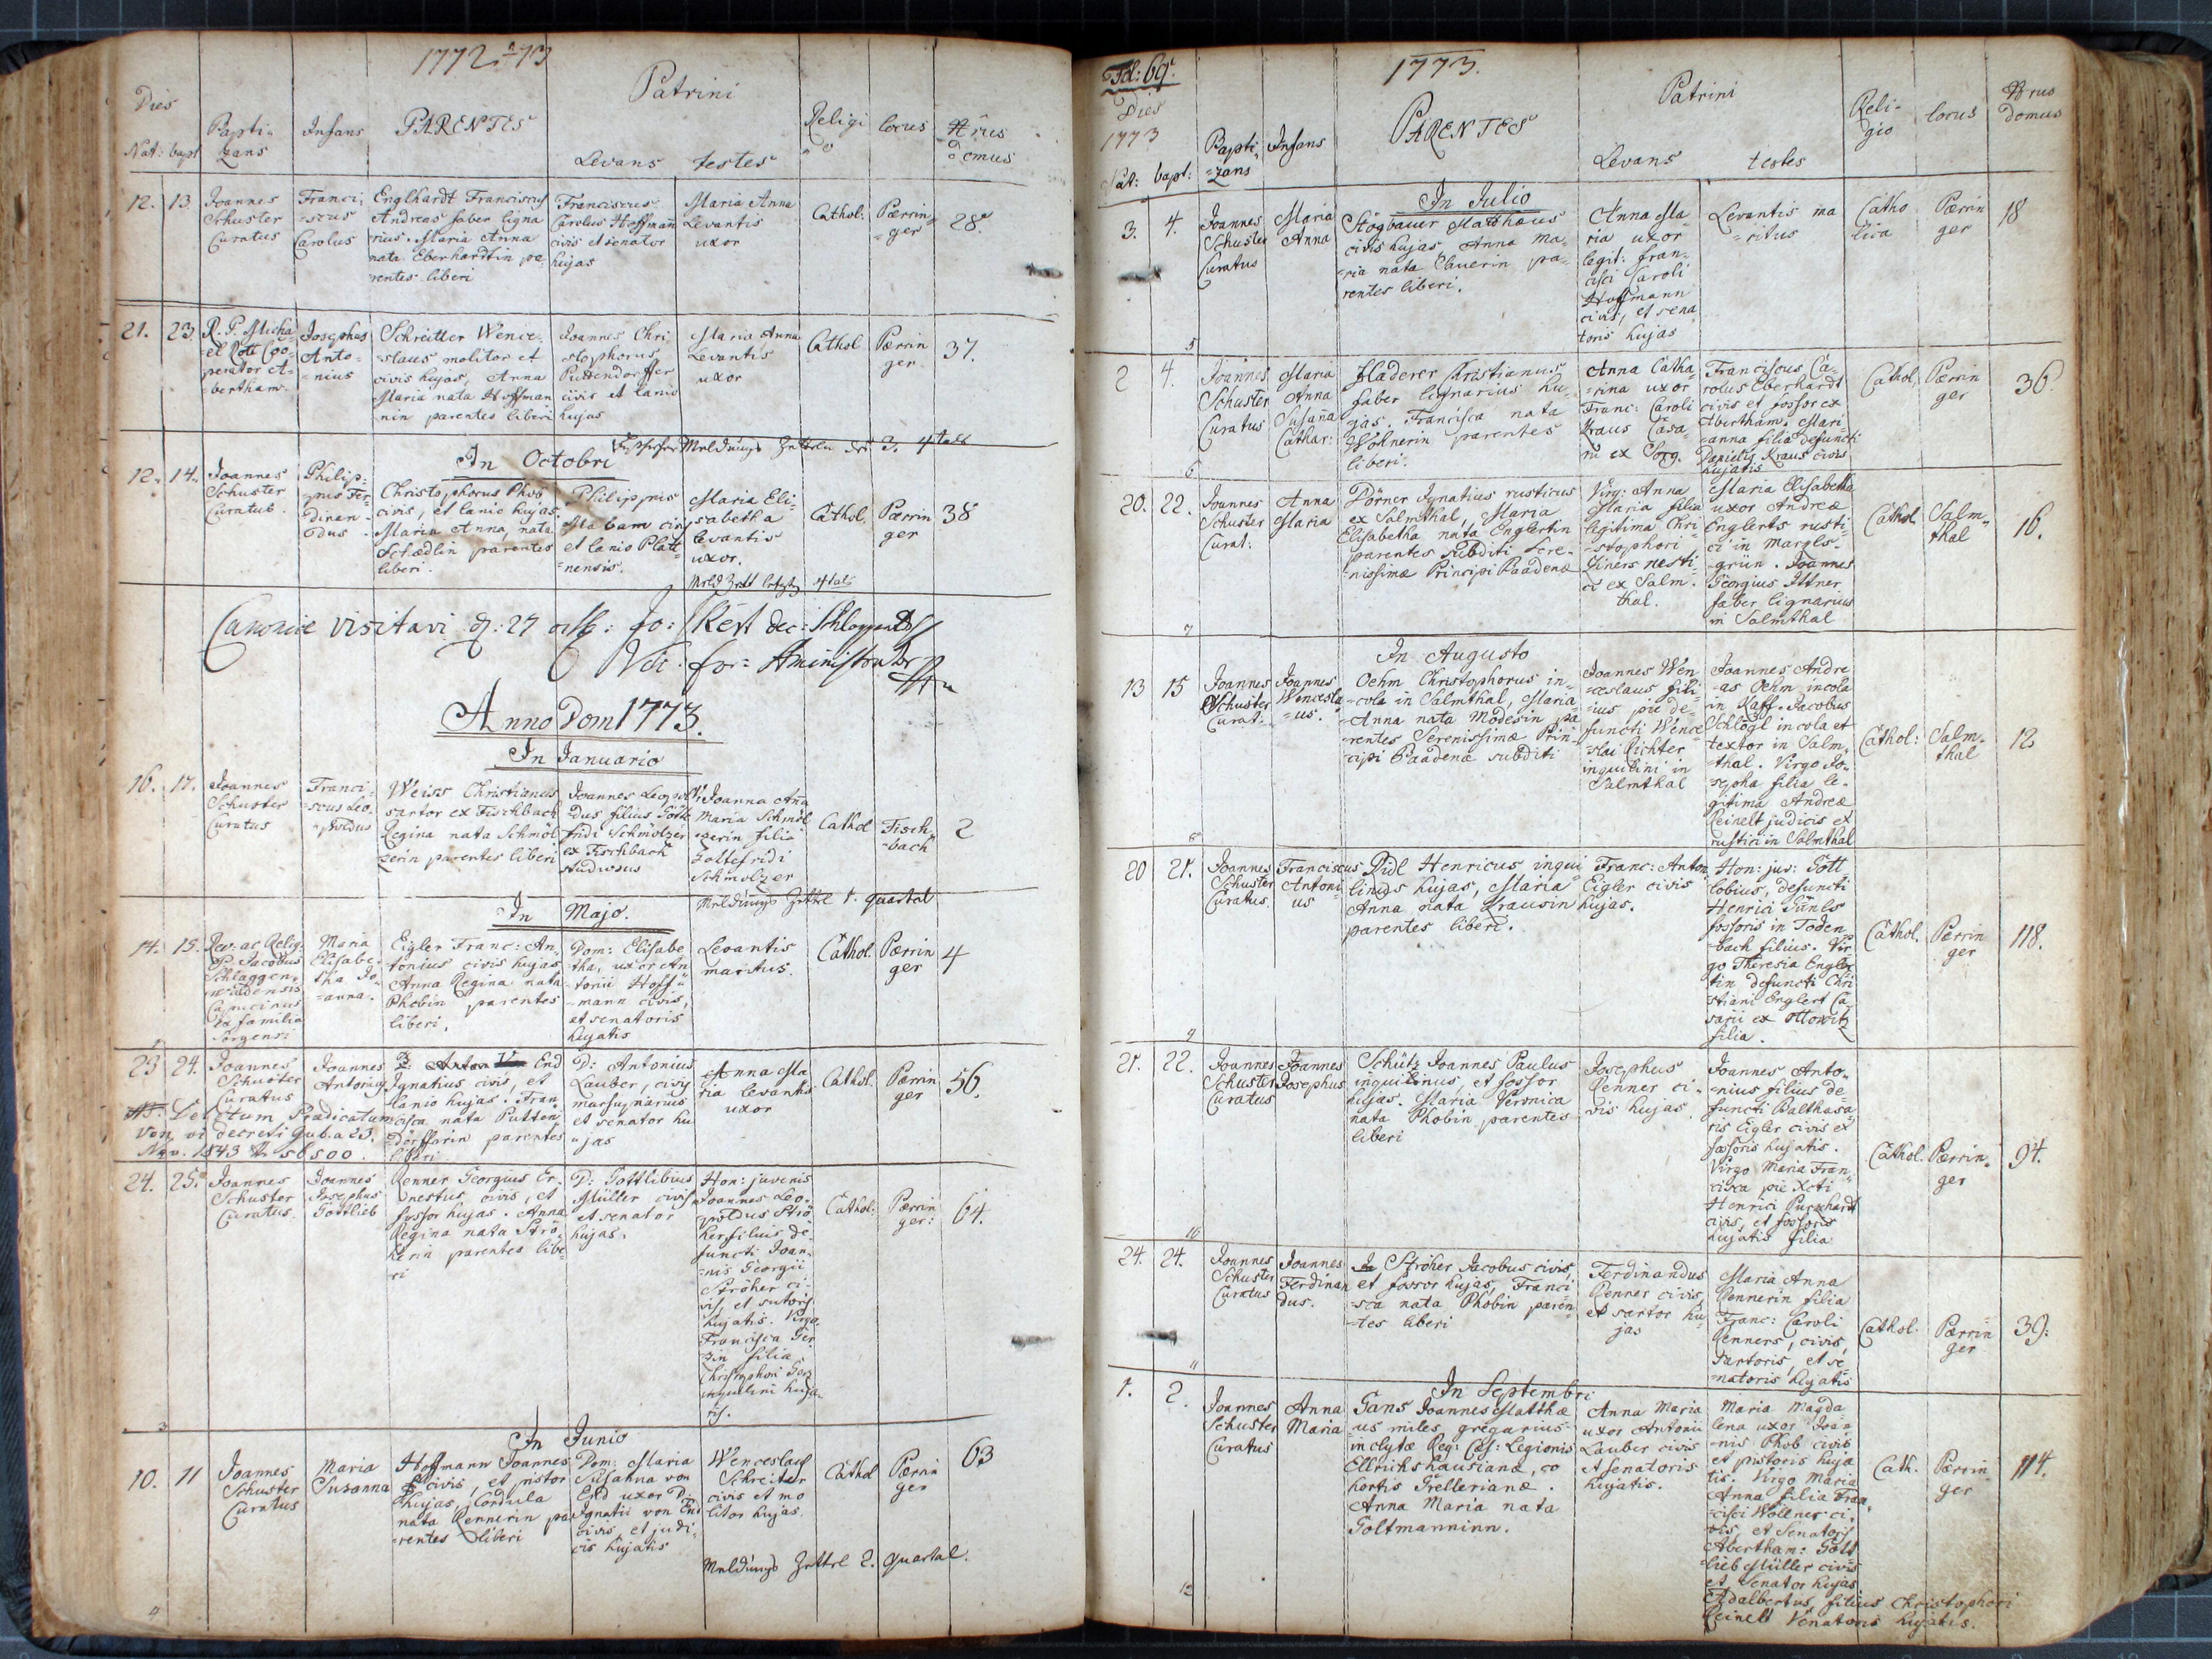 1772. et 73
Dies
Nat: bapt
Bapti-
zans
Infans
PARENTES
Patrini
Levans testes
Religi
o
locus
Nrus
Domus
12. 13
Joannes
Schuster
Curatus
Franci-
=scus
Carolus
Englhardt Franciscus
Andreas faber ligna
rius. Maria Anna
nata Eberhardtin pa-
rentes liberi
Franciscus
Carolus Hoffmañ
civis et senator
hujas
Maria Anna
Levantis
uxor
Cathol.
Pærrin=
=ger
28.
21. 23.
R. P. Micha-
el Rott Coo-
perator A-
bertham.
Josephus
Anto=
=nius
Schreitter Wence-
=slaus molitor et
civis hujas, Anna
Maria nata Hoffman
nin parentes liberi
Joannes Chri
stophorus
Püttendorffer
civis et lanio
hujas
Maria Anna
Levantis
uxor
Cathol
Pærrin
ger
37.
In Octobri
Meldungs Zettln des 3. 4tals
12. 14.
Joannes
Schuster
Curatus.
Philip=
=pus Fer=
dinan-
dus
Christophorus Phob
civis, et lanio hujas.
Maria Anna, nata
Schædlin parentes
liberi.
Philippus
Mabam civis
et lanio Platt=
=nensis.
Maria Eli-
sabetha
levantis
uxor.
Cathol.
Pærrin
ger
38
Canonice visitavi d: 27
Vic. for: Aministrator
Anno Dom 1773.
In Januario
16. 17.
Joannes
Schuster
Curatus
Franci-
=scus Leo-
=poldus
Weiss Christianus
sartor ex Fischbach
Regina nata Schmöl
zerin parentes liberi
Joannes Leopol
dus filius Gotte
fridi Schmölzer
ex Fischbach
studiosus
Joanna Aña
Maria Schmöl
zerin filia
Gottefridi
Schmolzer
Cathol
Fisch
=bach
2
Meldungs Zettel 1. quartal
In Majo.
14. 15.
Rev: ac Relig:
P. Jacobus
Schlaggen=
waldensis
Capucinus
ex familia
Sorgensi
Maria
Elisabe-
tha Jo
=anna.
Eigler Franc: An-
tonius civis hujas
Anna Regina nata
Phobin parentes
liberi.
Dom: Elisabe
tha, uxor An
tonii Hoff=
=mann civis,
et senatoris
hujatis
Levantis
maritus.
Cathol.
Pærrin
ger
4
1
23 24.
Joannes
Schuster
Curatus
Joannes
Antonius
End
Ignatius civis, et
lanio hujas. Fran
cisca nata Putten
dörfferin parentes
liberi
D: Antonius
Lauber, civis
marsupiarius
et senator hu
=jas
Anna Ma
ria levantis
uxor
Cathol.
Pærrin
ger
56.
NB: Delectum Prædicatum
von vi decreti Gub. a 23.
Nov. 1843 N. 56500.
24. 25.
Joannes
Schuster
Curatus.
Joannes
Josephus
Gottlieb
Renner Georgius Er-
nestus, civis, et
fossor hujas. Anna
Regina nata Strö-
herin parentes libe-
ri
D: Gottlibius
Müller civis
et senator
hujas.
Hon: juvenis
Joannes Leo-
poldus Strö
her filius de-
functi Joan-
=nis Georgii
Ströher ci-
vis, et sutoris
hujatis. Virgo
Francisca Ger
zin filia
Christophori Gerz
inquilini huja-
tis.
Cathol:
Pærrin
ger:
64.
3
In Junio
10. 11
Joannes
Schuster
Curatus
Maria
Susanna
Hoffmann Joannes
civis, et pistor
hujas, Cordula
nata Rennerin pa
=rentes liberi
Dom: Maria
Susanna von
End uxor D:
Ignatii von End
civis, et judi-
cis hujatis
Wenceslaus
Schreiter
civis et mo
litor hujas.
Cathol
Pærrin
ger
63
Meldungs Zettel 2. quartal.
4
Fol: 69.
1773.
Dies
1773
Nat: bapt:
Bapti-
=zans
Infans
PARENTES
Patrini
Levans testes
Reli-
gio
locus
Nrus
domus
In Julio
3. 4.
Joannes
Schuster
Curatus
Maria
Anna
Stögbauer Matthæus
civis hujas Anna Ma-
=ria nata Bauerin pa-
rentes liberi.
Anna Ma
ria uxor
legit: Fran-
cisci Caroli
Hoffmann
civis, et sena
toris hujas
Levantis ma
=ritus
Catho
lica
Pærrin
ger
18
5
2 4.
Joannes
Schuster
Curatus
Maria
Anna
Susaña
Cathar:
Haderer Christianus
faber lignarius hu-
jas. Francisca nata
Wöhnerin parentes
liberi.
Anna Catha
=rina uxor
Franc: Caroli
Kraus Cæsa-
rii ex Sorg.
Franciscus Ca-
rolus Eberhardt
civis et fossor ex
Abertham. Mari-
=anna filia defuncti
Danielis Kraus civis
hujatis
Cathol.
Pærrin
ger
36.
6
20. 22.
Joannes
Schuster
Curat:
Anna
Maria
Dörner Ignatius rusticus
ex Salmthal, Maria
Elisabetha nata Englertin
parentes subditi Sere-
=nissimæ Principi Baadenæ
Virg: Anna
Maria filia
legitima Chri
=stophori
Zieners rusti-
ci ex Salm.
thal.
Maria Elisabetha
uxor Andreæ
Englerts rusti-
ci in Margls-
=grün. Joannes
Georgius Ittner
faber lignarius
in Salmthal
Cathol.
Salm-
thal
16.
7
In Augusto
13 15
Joannes
Schuster
Curat:
Joannes
Wencesla-
=us.
Oehm Christophorus in-
=cola in Salmthal, Maria-
Anna nata Modesin pa
=rentes Serenissimæ Prin-
cipi Baadenæ subditi
Joannes Wen
=ceslaus fili-
=ius pie de-
functi Wence
slai Richter
inquilini in
Salmthal
Joannes Andre
=as Oehm incola
in Kaff. Jacobus
Schlögl incola et
textor in Salm-
=thal. Virgo Jo-
sepha filia le-
gitima Andreæ
Reinelt judicis et
rustici in Salmthal
Cathol:
Salm-
thal
12
8
20 21.
Joannes
Schuster
Curatus.
Franciscus
Antoni
us
Pidl Henricus inqui
linus hujas, Maria
Anna nata Krausin
parentes liberi.
Franc: Anton
Eigler civis
hujas.
Hon: juv: Gott
lobius, defuncti
Henrici Günls
fossoris in Toden
=bach filius. Vir
go Theresia Engler
tin defuncti Chri
=stiani Englert Cæ
sarii ex Ottowitz
filia.
Cathol.
Pærrin
ger
118.
9
21. 22.
Joannes
Schuster
Curatus
Joannes
Josephus
Schütz Joannes Paulus
inquilinus, et fossor
hujas. Maria Veronica
nata Phobin parentes
liberi
Josephus
Renner ci-
vis hujas
Joannes Anto-
=nius filius de-
functi Balthasa
ris Eigler civis et
fossoris hujatis.
Virgo Maria Fran-
cisca pie Xcti
Henrici Purckhardt
civis, et fossoris
hujatis filia
Cathol.
Pærrin-
ger
94.
10
24. 24.
Joannes
Schuster
Curatus
Joannes
Ferdinan
dus.
Ströher Jacobus civis,
et fossor hujas, Franci
=sca nata Phobin paren
=tes liberi
Ferdinandus
Renner civis,
et sartor hu-
jas
Maria Anna
Rennerin filia
Franc: Caroli
Renners, civis,
Sartoris, et se-
=natoris hujatis
Cathol.
Pærrin
ger
39.
11
In Septembri
1. 2.
Joannes
Schuster
Curatus
Anna
Maria
Gans Joannes Matthæ
us miles gregarius
inclytæ Reg: Cæs: Legionis
Ellrichshausianæ, co
hortis Grellerianæ.
Anna Maria nata
Goltmanninn.
Anna Maria
uxor Antonii
Lauber civis
et senatoris
hujatis.
Maria Magda
lena uxor Joa-
=nis Phob civis
et pistoris huja
tis. Virgo Maria
Anna filia Fran-
=cisci Wöllner ci-
vis, et Senatoris
Abertham: Gott
=lieb Müller civis
et Senator hujas
Adalbertus filius Christophori
Reinelt Venatoris hujatis.
Cath.
Pærrin-
ger
114.
12